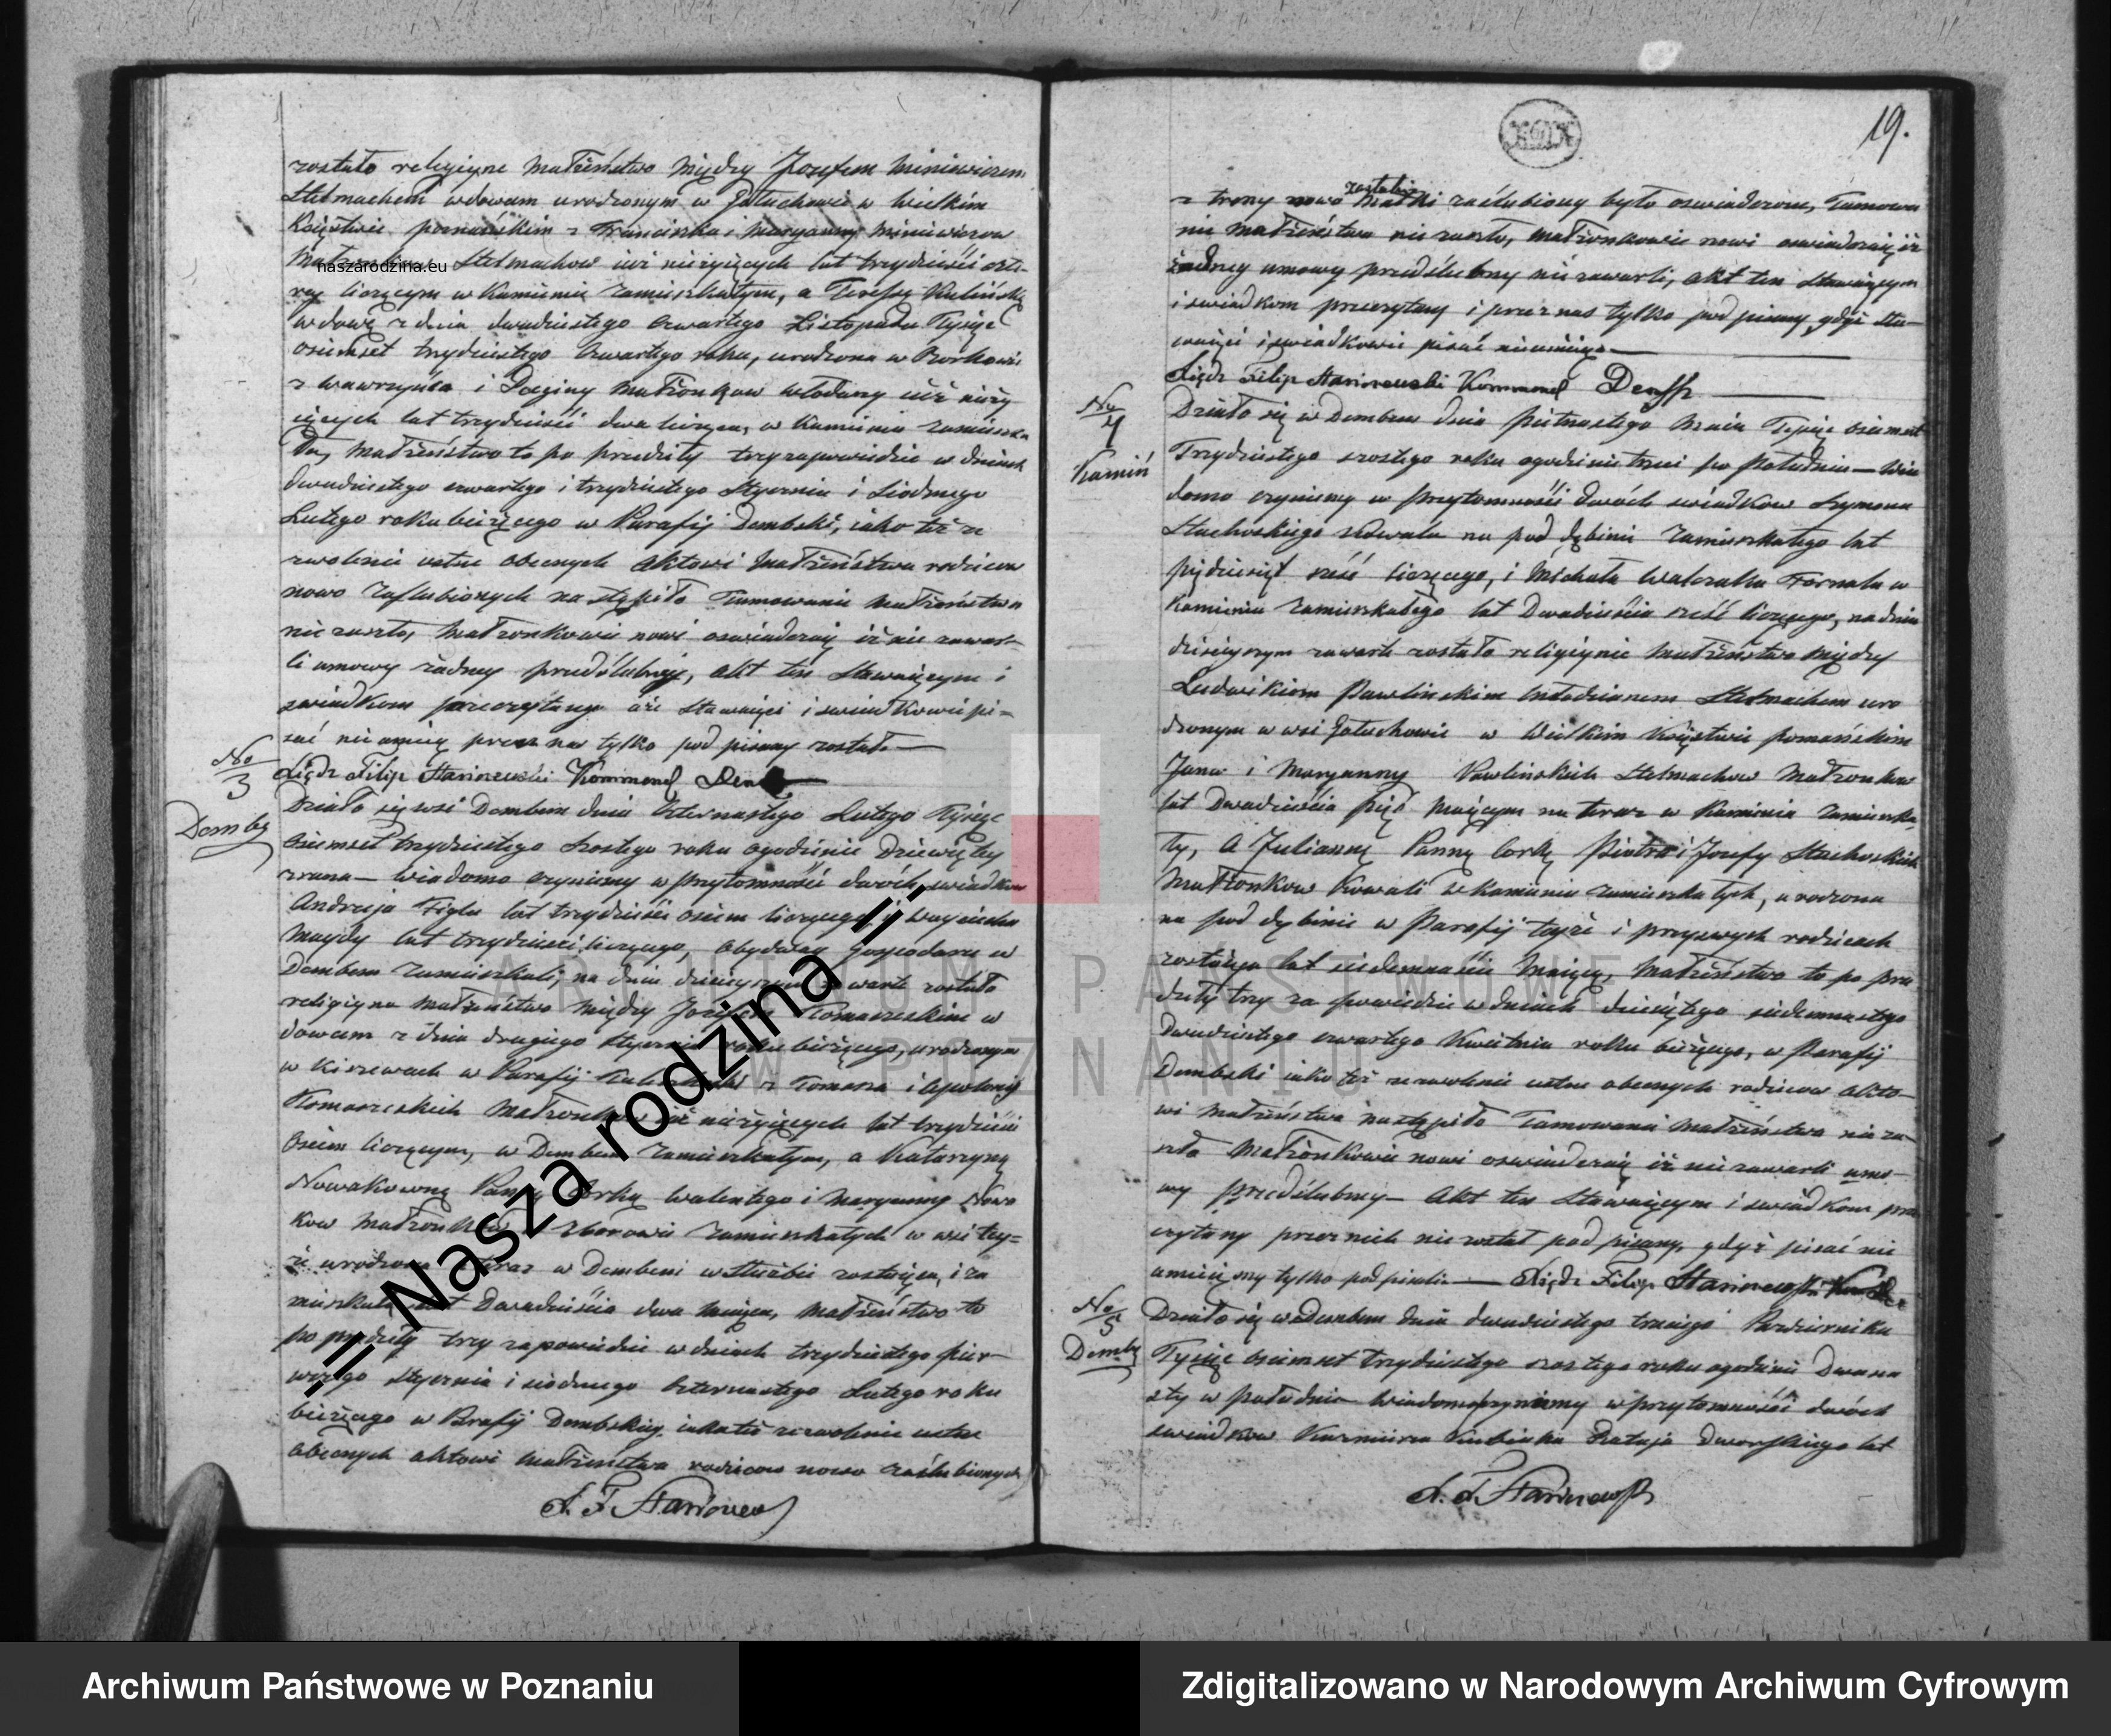 19.
zostało religijne Małżeństwo Między Jozefem
Stelmachem wdowcem urodzonym w Gołuchowie w Wielkim
Księstwie poznańskim z Franciszka i Maryanny
naszarodzina.eu
Stelmachow iuż nieżyjących lat trzydzieści czte-
ry liczącym w Kamieniu zamieszkałym, a Teressę
wdowę z dnia dwudziestego czwartego Listopada Tysiąc
osiemset trzydziestego czwartego roku, urodzona w
z Wawrzyńca i Małżonkow iuż nieży
iących lat trzydzieści dwa licząca, w Kamieniu zamieszka
łą, Małżeństwo to po przedziły trzy zapowiedzie w dniach
dwudziestego czwartego i trzydziestego Stycznia i Siodmego
Lutego roku bieżącego w Parafij Dembski, iako też ze
zwolenie ustne obecnych Aktowi Małżeństwa rodzicow
nowo Zaslubionych nastąpiło Tamowanie Małżeństwa
nie zaszło, Małżonkowie nowi oswiadczaią iż nie zawar-
li umowy żadney przedślubney, Akt ten Stawaiącym i
swiadkom przeczytany iże Stawaiący i swiadkowie pi-
sać nieumieią przez nas tylko podpisany został
No
3
Demby
Xiądz Filip Kommend
Działo się wsi Dembem dnia czternastego Lutego Tysiąc
Osiemset trzydziestego szostego roku ogodzinie Dziewiąty
zrana — wiadomo czyniemy w przytomności dwóch swiadkow
Andrzeja Figla lat trzydzieści osiem liczącego i Woyciecha
Maydy lat trzydzieści liczącego, obydway Gospodarze w
Dembem zamieszkali; na dniu dzisieyszym zawarte zostało
religijne Małżeństwo między Jozefem w
dowcem z dnia drugiego Stycznia roku bieżącego, urodzonym
w w Parafij z Tomasza i Apolonij
Małżonkow iuż nieżyjących lat trzydzieści
Osiem liczącym, w Dembem zamieszkałym, a Katarzyną
Nowakowną Panną Corką Walentego i Maryanny Nowa
kow Małżonkow zamieszkałych w wsi tey-
że urodzona teraz w Dembem w służbie zostaiąca, i za
mieszkała lat Dwadzieścia dwa maiąca, Małżeństwo to
po przedziły trzy zapowiedzie w dniach trzydziestego pier-
wszego Stycznia i siodmego czternastego Lutego roku
bieżącego w Parafij Dembskiey, iakoteż zezwolenie ustne
obecnych aktowi Małżeństwa rodzicow nowo zaślubionych
z strony nowo zaślubiony było oswiadczone, Tamowa
nie Małżeństwa nie zaszło, Małżonkowie nowi oswiadczaią iż
żadney umowy przedślubney nie zawarli, Akt ten Stawaiącym
i swiadkom przeczytany i przez nas tylko podpisany gdyż Sta-
waiący i swiadkowie pisać nieumieią
Xiądz Filip Kommend
No
4
Kamień
Działo się w Dembem dnia Piętnastego Maia Tysiąc osiemset
Trzydziestego szostego roku ogodzinie trzeci po Południu — Wia
domo czyniemy w przytomności dwóch swiadkow Szymona
Stachoskiego na pod dębinie zamieszkałego lat
pięćdziesiąt sześć liczącego, i Michała Walczaka Fornala w
Kamieniu zamieszkałego lat Dwadzieścia sześć liczącego, na dniu
dzisieyszym zawarte zostało religijnie Małżeństwo między
Ludwikiem Pawlinskim Młodzianem Stelmachem uro
dzonym w wsi Gołuchowie w Wielkim Księstwie poznańskim
Jana i Maryanny Pawlińskich Stelmachow Małżonkow
lat Dwadzieścia pięć maiącym na teraz w Kamieniu zamieszka
ły, A Juliannę Pannę Corkę Piotra i Jozefy Stachoskich
Małżonkow Kowali w Kamieniu zamieszkałych, urodzona
na pod dębinie w Parafij teyże i przyswych rodzicach
zostaiąca lat siedemnaście Maiącą, Małżeństwo to po prze
dziły trzy za powiedzie w dniach dziesiątego siedemnastego
Dwudziestego czwartego Kwietnia roku bieżącego, w Parafij
Dembski iako też zezwolenie ustne obecnych rodzicow Akto-
wi Małżeństwa nastąpiło Tamowanie Małżeństwa nie za-
szło Małżonkowie nowi oswiadczaią iż nie zawarli umo-
wy przedślubney — Akt ten Stawaiącym i swiadkom prze
czytany przez nich nie został podpisany, gdyż pisać nie
umieią my tylko podpisali — Xiądz Filip
No
5
Demby
Działo się w Dembem dnia dwudziestego trzeciego Pazdziernika
Tysiąc osiemset trzydziestego szostego roku ogodzinie Dwuna
sty w południe Wiadomo czyniemy w przytomności dwóch
swiadkow Kazmierza Kubiaka Rataja dworskiego lat
|| Nasza rodzina ||
ARCHIWUM PAŃSTWOWE
W POZNANIU
Archiwum Państwowe w Poznaniu
Zdigitalizowano w Narodowym Archiwum Cyfrowym